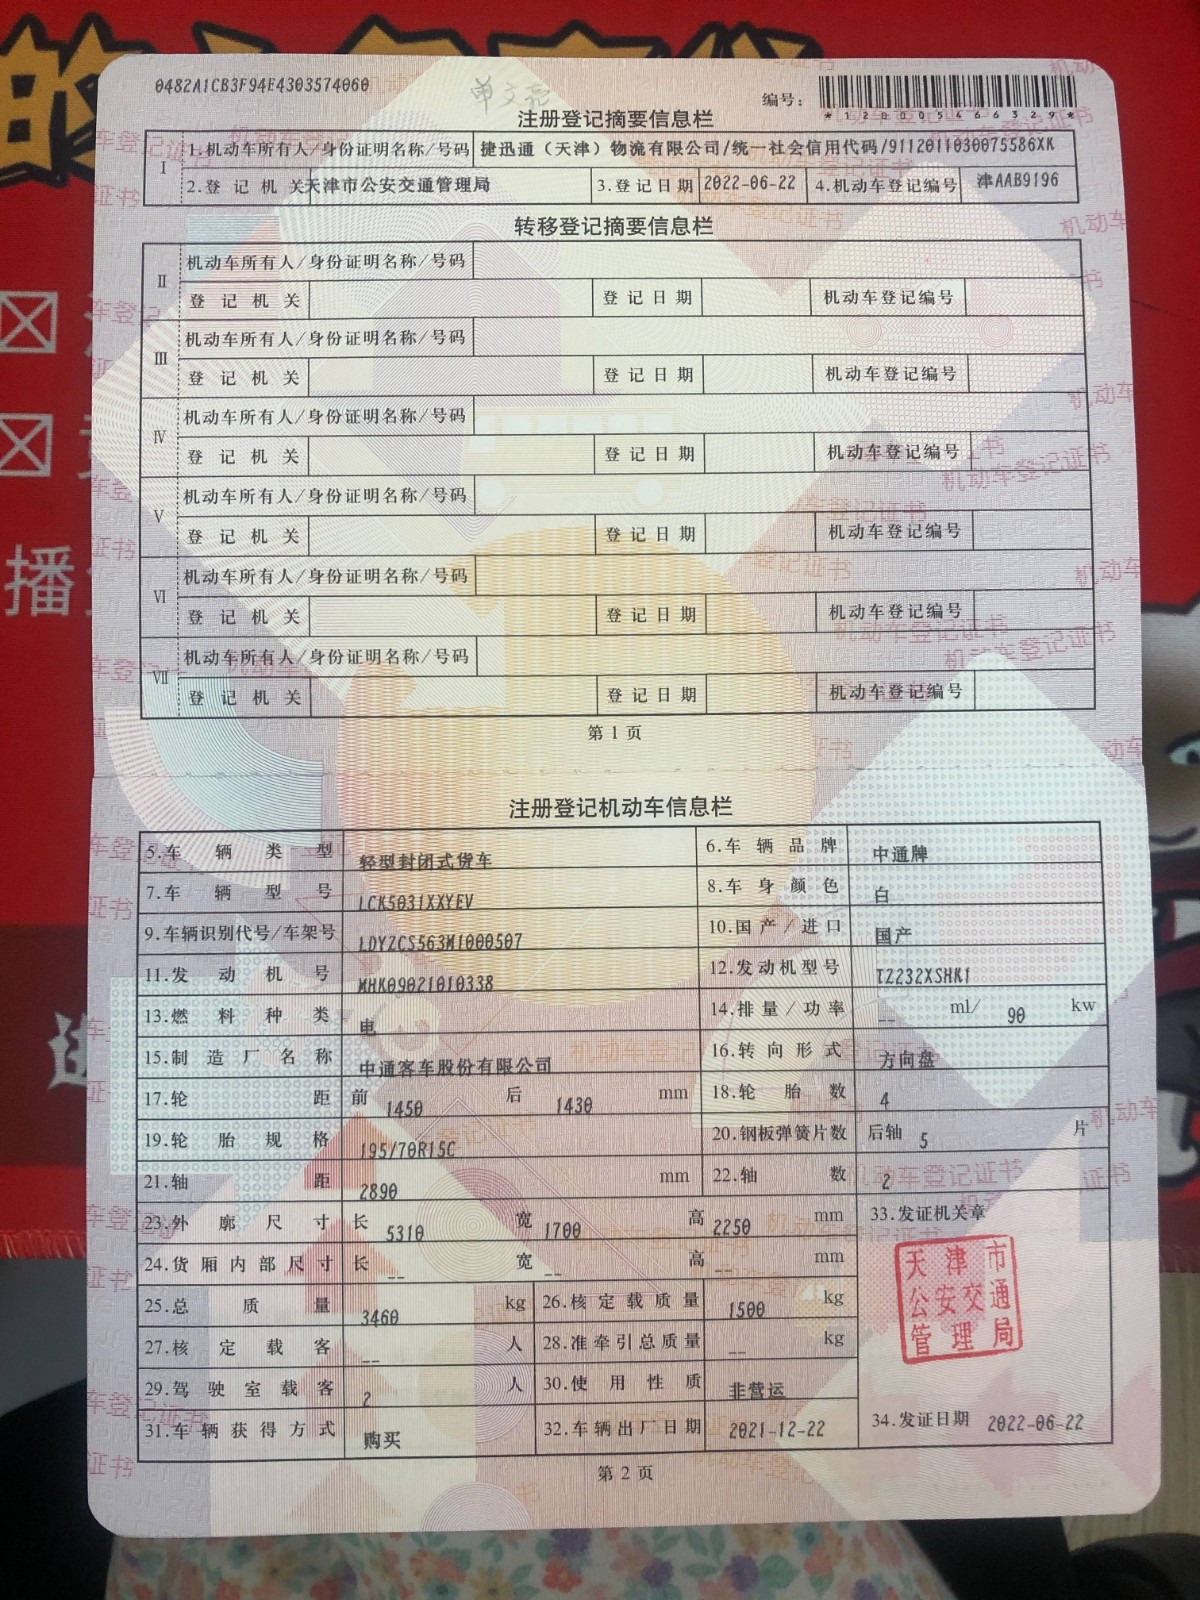 0482A1CB3F94E4303574060
单文亮
编号：
*120005466329*
注册登记摘要信息栏
I
1.机动车所有人/身份证明名称/号码 捷迅通（天津）物流有限公司/统一社会信用代码/91120110300755 86XK
2.登记机关 天津市公安交通管理局 3.登记日期 2022-06-22 4.机动车登记编号 津AAB9196
转移登记摘要信息栏
II
机动车所有人/身份证明名称/号码
登记机关 登记日期 机动车登记编号
III
机动车所有人/身份证明名称/号码
登记机关 登记日期 机动车登记编号
IV
机动车所有人/身份证明名称/号码
登记机关 登记日期 机动车登记编号
V
机动车所有人/身份证明名称/号码
登记机关 登记日期 机动车登记编号
VI
机动车所有人/身份证明名称/号码
登记机关 登记日期 机动车登记编号
VII
机动车所有人/身份证明名称/号码
登记机关 登记日期 机动车登记编号
第1页
注册登记机动车信息栏
5.车辆类型 轻型封闭式货车 6.车辆品牌 中通牌
7.车辆型号 LCK5031XXYEV 8.车身颜色 白
9.车辆识别代号/车架号 LDYZCS563M1000507 10.国产/进口 国产
11.发动机号 MHK09021010338 12.发动机型号 TZ232XSHK1
13.燃料种类 电 14.排量/功率 -- ml/ 90 kw
15.制造厂名称 中通客车股份有限公司 16.转向形式 方向盘
17.轮距 前 1450 后 1430 mm 18.轮胎数 4
19.轮胎规格 195/70R15C 20.钢板弹簧片数 后轴 5 片
21.轴距 2890 mm 22.轴数 2
23.外廓尺寸 长 5310 宽 1700 高 2250 mm 33.发证机关章
24.货厢内部尺寸 长 -- 宽 -- 高 -- mm
天津市
公安交通
管理局
25.总质量 3460 kg 26.核定载质量 1500 kg
27.核定载客 -- 人 28.准牵引总质量 -- kg
29.驾驶室载客 2 人 30.使用性质 非营运
31.车辆获得方式 购买 32.车辆出厂日期 2021-12-22 34.发证日期 2022-06-22
第2页
播